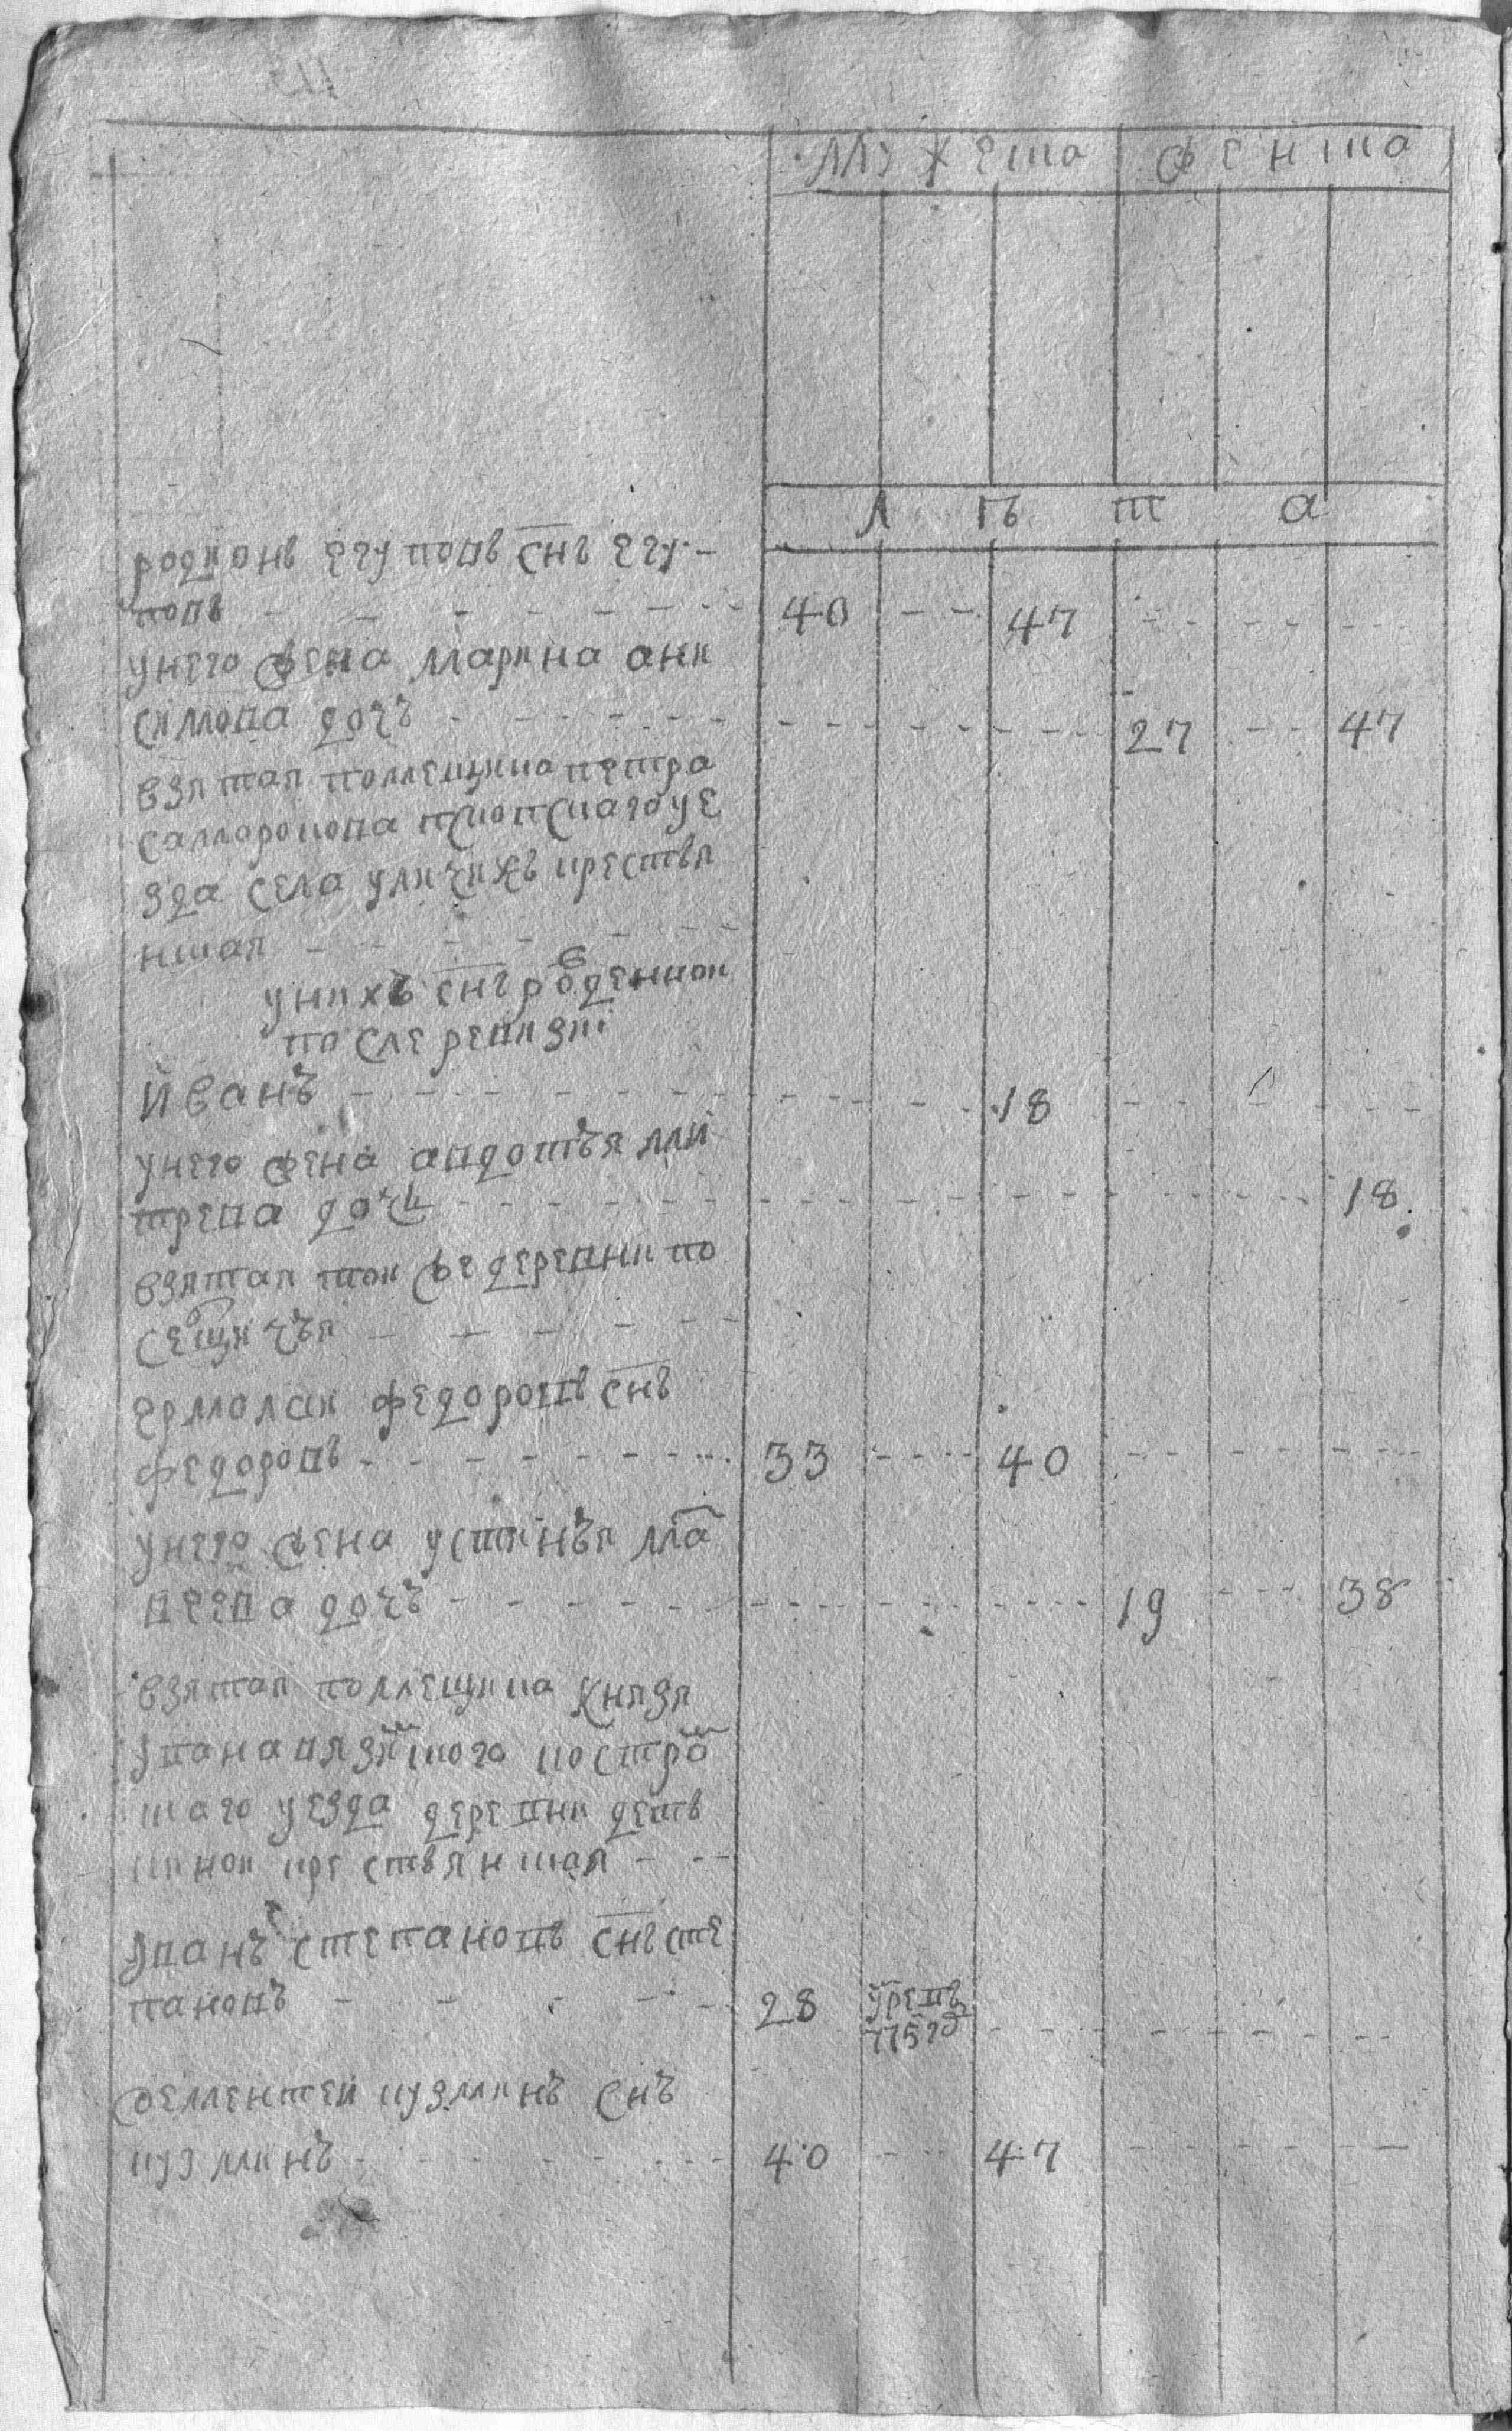 мужеска женска
л ѣ т а
родионъ егуповъ снъ егу-
повъ 40 47
унего жена марина они
симова дочь 27 47
взятая помещика петра
саморокова псковскаго уе
зда села уличихъ крестья
нская
унихъ снъ рожденнои
после ревизиі
Иванъ 18
унего жена авдотья ми
трева дочь 18
взятая тои же деревни по
сещичья
ермолаи федоровъ снъ
федоровъ 33 40
унего жена устинья ма
твеева дочь 19 38
взятая помещика князя
ивана вязмского костро
скаго уезда деревни детъ
кинои крестьянская
иванъ степановъ снъ сте
пановъ 28 умре въ
775 году
клементеи кузминъ снъ
кузминъ 40 47